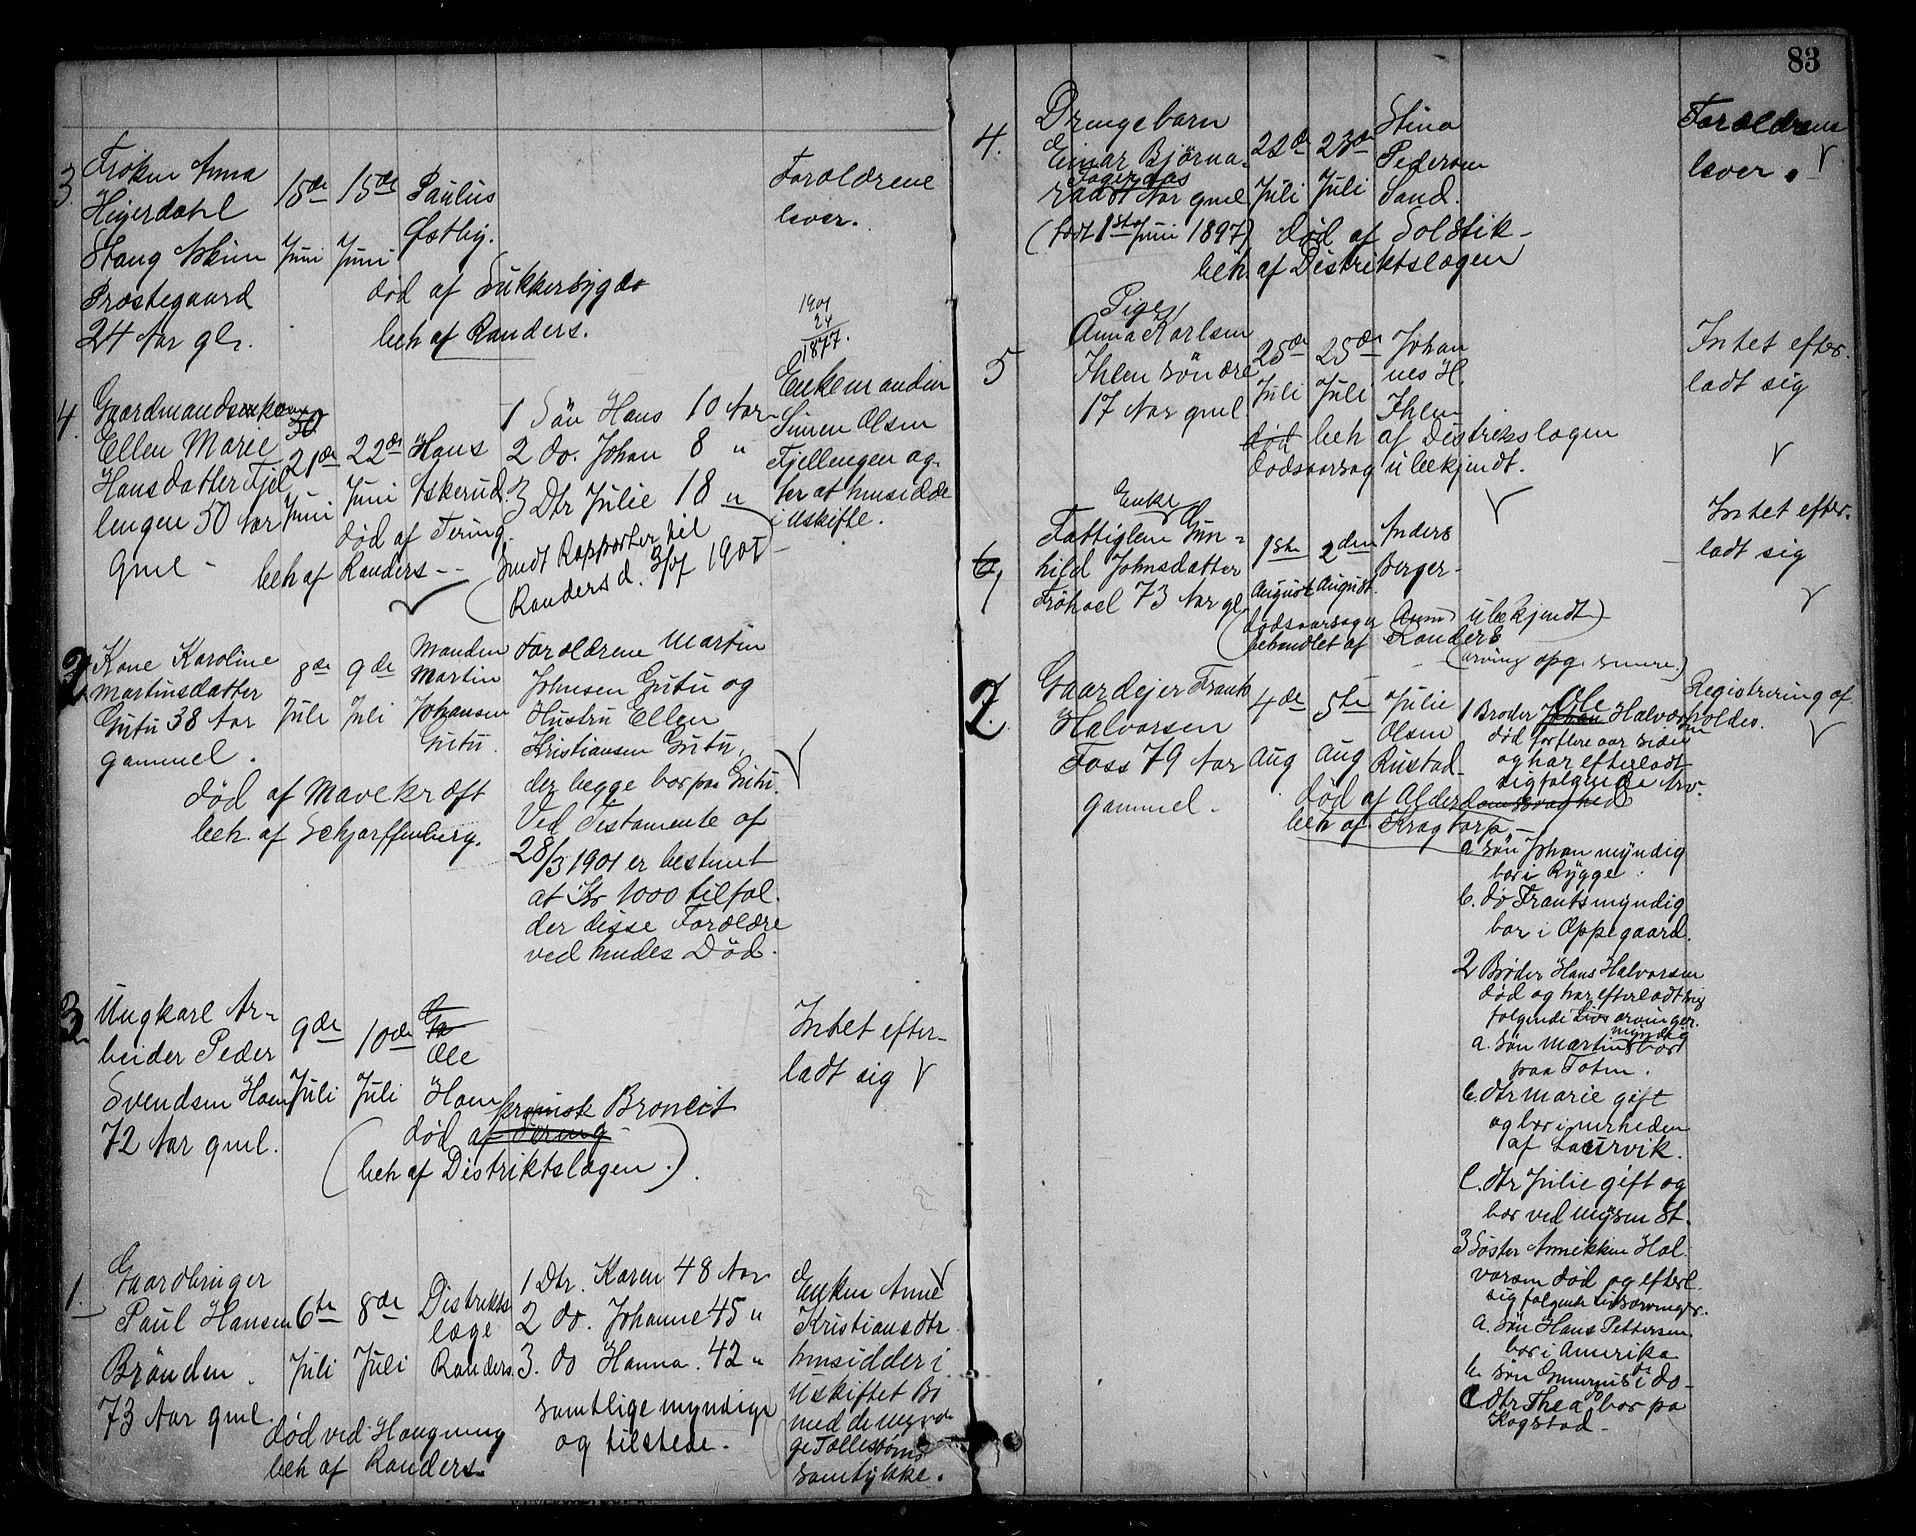 83
3.
Frøken Anna
Heyerdahl
Stang Askim
Præstegaard
24 Aar gl.
15de
Juni
15de
Juni
Paulus
Østby.
død af Sukkersyge
beh af Randers.
Forældrene
lever.
1901
24
1877.
4.
Gaardmandskone
Ellen Marie
Hansdatter Fjel
lengen 50 Aar
gml -
30
21de
Juni
22de
Juni
Hans
Askerud.
død af Tering.
beh af Randers -
1 Søn Hans 10 Aar
2 do. Johan 8 "
3 Dtr Julie 18 "
(Sendt Rapporter til
Randers d. 3/7 1901)
Enkemanden
Simen Olsen
Fjellengen ag-
ter at hensidde
i Uskifte.
2
Kone Karoline
Martinsdatter
Gutu 38 Aar
gammel.
8de
Juli
9de
Juli
Manden
Martin
Johansen
Gutu.
død af Mavekræft
beh. af Scharffenberg.
Forældrene Martin
Johnsen Gutu og
Hustru Ellen
Kristiansen Gutu,
der begge bor paa Gutu.
Ved Testamente af
28/3 1901 er bestemt
at Kr 1000 tilfal.
der disse Forældre
ved hendes Død.
3
Ungkarl Ar-
beider Peder
Svendsen Ham
72 Aar gml.
9de
Juli
10de
Juli
Ole
Ham
kronisk Broncit
død af Tering
(beh af Distriktslægen.)
Intet efter-
ladt sig
1.
Gaardbruger
Paul Hansen
Brønden.
73 Aar gml.
6te
Juli
8de
Juli
Distrikts
læge
Randers.
død ved Hængning
beh af Randers.
1 Dtr. Karen 48 Aar
2 do. Johanne 45 "
3. do Hanna. 42 "
samtlige myndige
og tilstede.
Enken Anne
Kristiansdtr
hensidder i
Uskiftet Bo
med de myndi
ge Fællesbørns
samtykke.
4.
Drengebarn
Einar Bjørna-
Fageraas
raa 4 Aar gml
(født 1ste Juni 1897)
22de
Juli
23de
Juli
Stina
Pedersen
Sand.
død af Solstik -
beh. af Distriktslægen
Forældrene
lever.
5
Pige
Anna Karlsen
Ihlen søndre
17 Aar gml
25de
Juli
25de
Juli
Johan
nes H.
Ihlen
død beh af Distriktslægen
Dødsaarsag ubekjendt.
Intet efter.
ladt sig
6
1
Enke
Fattiglem Gun-
hild Johnsdatter
Frøhael 73 Aar gl
1ste
August
2den
August.
Anders
Berger-
(Dødsaarsagen ubekjendt)
behandlet af Randers
(arving opg. senere.)
Intet efter.
ladt sig
2.
Gaardejer Frants
Halvorsen
Foss 79 Aar
gammel.
4de
Aug
5te
Aug
Julie
Olsen
Rustad-
død af Alderdomssvaghed
beh af Kragtorp.-
Ole
1 Broder Johan Halvorsen
død for flere aar siden
og har efterladt
sig følgende Arv.
a søn Johan myndig
bor i Rygge.
b. do Frants myndig
bor i Oppegaard.
2 Broder Hans Halvorsen
død og har efterladt sig
følgende Livsarvinger.
myndig
a. søn Martin bor
paa Toten.
b. dtr Marie gift
og bor i nærheden
af Laurvik.
C. dtr Julie gift og
bor ved Mysen St.
3 Søster Annikken Hal-
vorsen død og efterl.
sig følgende Livsarvinger.
a. søn Hans Pettersen.
bor i Amerika
b. søn do i do-
C dtr Thea bor pa
Kogstad-
Registrering af
holdes.